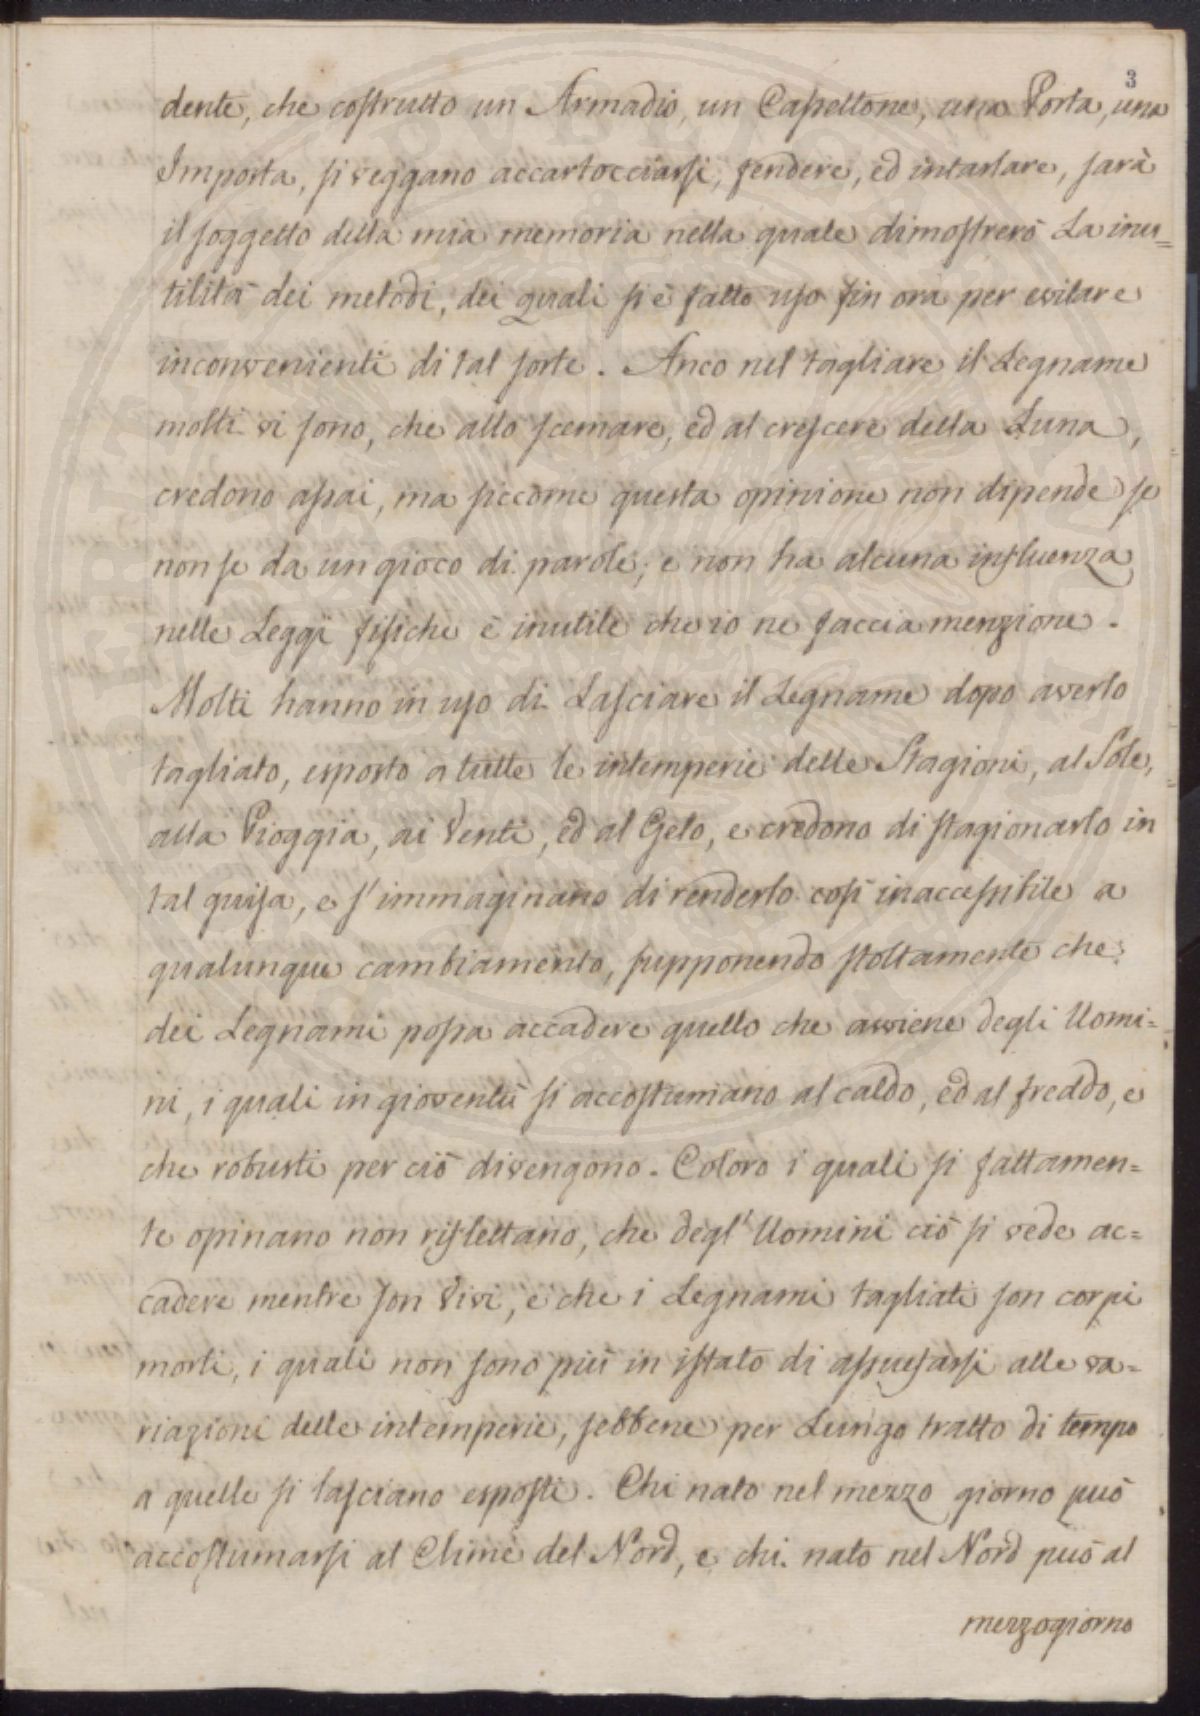 3
dente, che costrutto un Armadio, un Cassettone, una Porta, una
Imposta, si veggano accartocciarsi, fendere, ed intarlare, sarà
il soggetto della mia memoria nella quale dimostrerò la inu=
tilità dei metodi, dei quali si è fatto uso fin ora per evitare
inconvenienti di tal sorte. Anco nel tagliare il Legname
molti vi sono, che allo scemare, ed al crescere della Luna,
credono assai, ma siccome questa opinione non dipende se
non se da un gioco di parole, e non ha alcuna influenza
nelle Leggi fisiche è inutile che io ne faccia menzione.
Molti hanno in uso di Lasciare il Legname dopo averlo
tagliato, esposto a tutte le intemperie delle Stagioni, al Sole,
alla Pioggia, ai Venti, ed al Gelo, e credono di stagionarlo in
tal guisa, e s'immaginano di renderlo così inaccessibile a
qualunque cambiamento, supponendo stoltamente che
dei Legnami possa accadere quello che avviene degli Uomi=
ni, i quali in gioventù si accostumano al caldo, ed al freddo, e
che robusti per ciò divengono. Coloro i quali si fattamen=
te opinano non riflettano, che degl' Uomini ciò si vede ac=
cadere mentre son Vivi, e che i Legnami tagliati son corpi
morti, i quali non sono più in istato di assuefarsi alle va=
riazioni delle intemperie, sebbene per Lungo tratto di tempo
a quelle si lasciano esposti. Chi nato nel mezzo giorno può
accostumarsi al Clima del Nord, e chi nato nel Nord può al
mezzogiorno